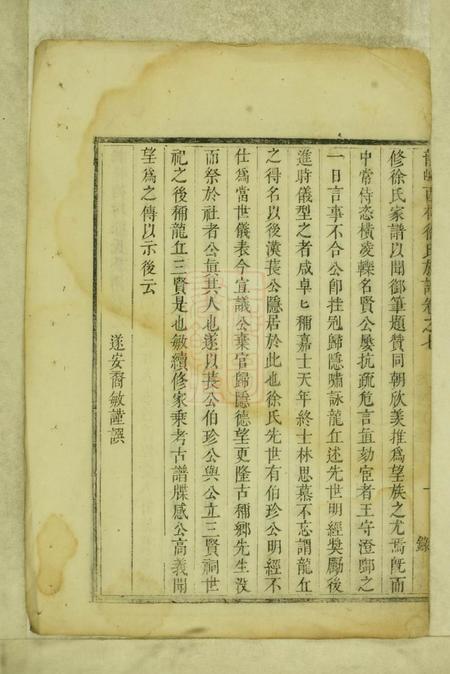 修徐氏家譜以聞御筆題贊同朝欣羡推爲望族之尤焉旣而
中常侍恣橫凌轢名賢公屢抗疏危言直劾宦者王守澄啣之
一日言事不合公卽挂冠歸隱嘯詠龍丘述先世明經奬勵後
進時儀型之者咸卓匕稱嘉士天年終士林思慕不忘謂龍丘
之得名以後漢萇公隱居於此也徐氏先世有伯珍公明經不
仕爲當世儀表今宣議公棄官歸隱德望更隆古稱鄉先生沒
而祭於社者公眞其人也遂以萇公伯珍公與公立三賢祠世
祀之後稱龍丘三賢是也敏續修家乘考古譜牒感公高義聞
望爲之傳以示後云
遂安裔敏謹譔